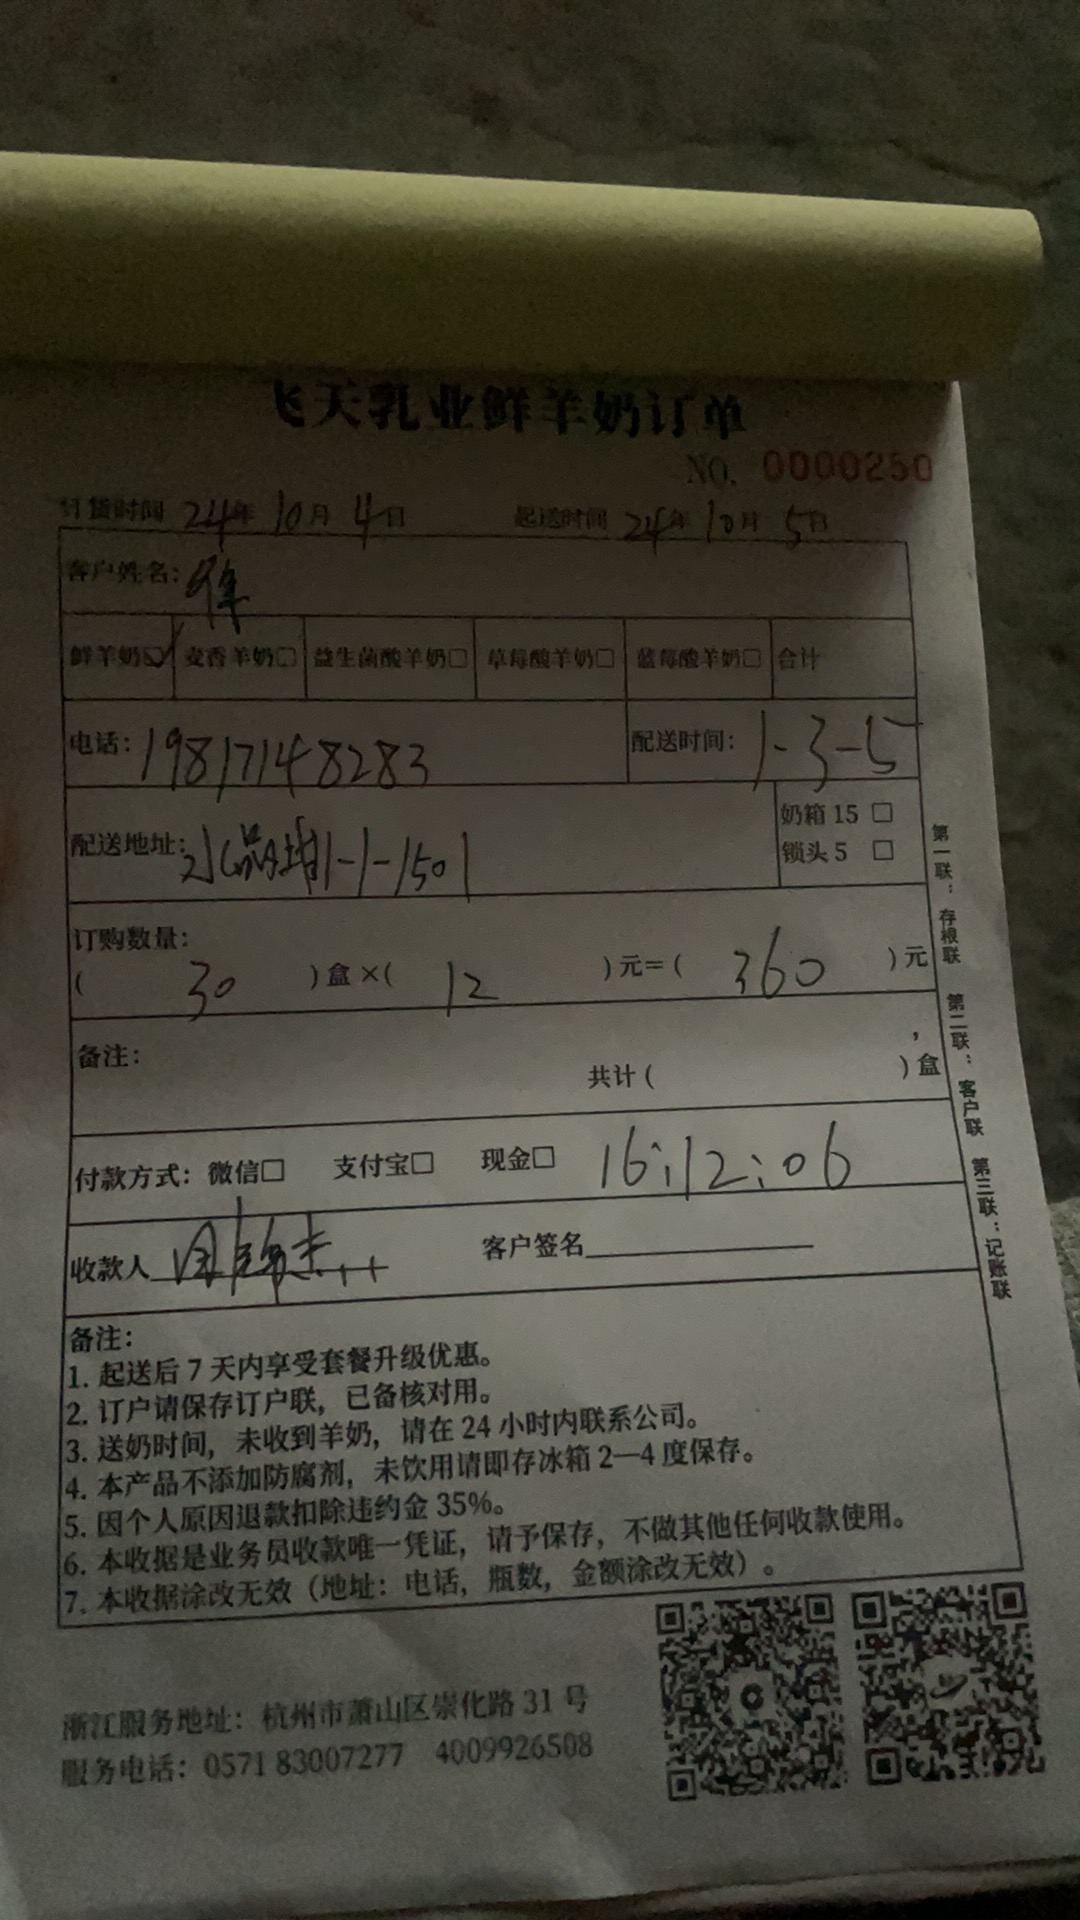 飞天乳业鲜羊奶订单
NO. 0000250
订货时间 24年 10月 4日 起送时间 24年 10月 5日
客户姓名：
鲜羊奶☑ 麦香羊奶□ 益生菌酸羊奶□ 草莓酸羊奶□ 蓝莓酸羊奶□ 合计
电话：19817148283 配送时间：1-3-5
配送地址：水晶1-1-1501
奶箱 15 □
锁头 5 □
订购数量：
( 30 )盒×( 12 )元=( 360 )元
备注：
共计( )盒
付款方式：微信□ 支付宝□ 现金□ 16:12:06
收款人 客户签名
备注：
1. 起送后 7 天内享受套餐升级优惠。
2. 订户请保存订户联，已备核对用。
3. 送奶时间，未收到羊奶，请在 24 小时内联系公司。
4. 本产品不添加防腐剂，未饮用请即存冰箱 2—4 度保存。
5. 因个人原因退款扣除违约金 35%。
6. 本收据是业务员收款唯一凭证，请予保存，不做其他任何收款使用。
7. 本收据涂改无效（地址：电话，瓶数，金额涂改无效）。
第一联：存根联 第二联：客户联 第三联：记账联
浙江服务地址：杭州市萧山区崇化路 31 号
服务电话：0571 83007277 4009926508